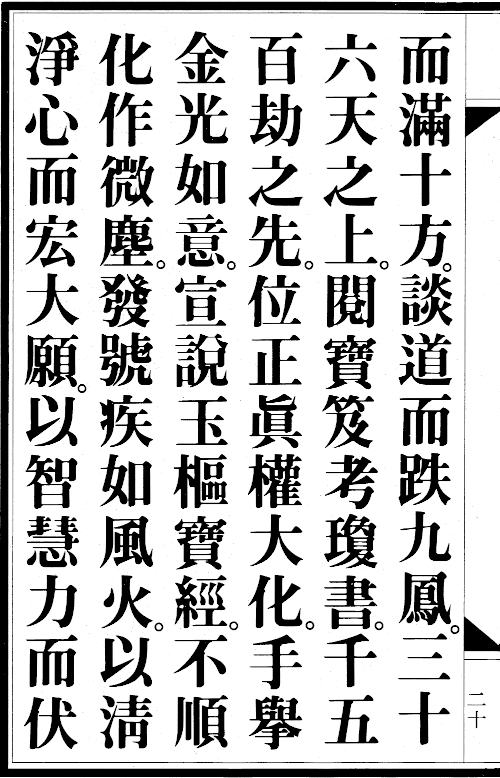 而滿十方。談道而趺九鳳。三十
六天之上。閱寶笈考瓊書。千五
百劫之先。位正眞權大化。手舉
金光如意。宣說玉樞寶經。不順
化作微塵。發號疾如風火。以淸
淨心而宏大願。以智慧力而伏
二十